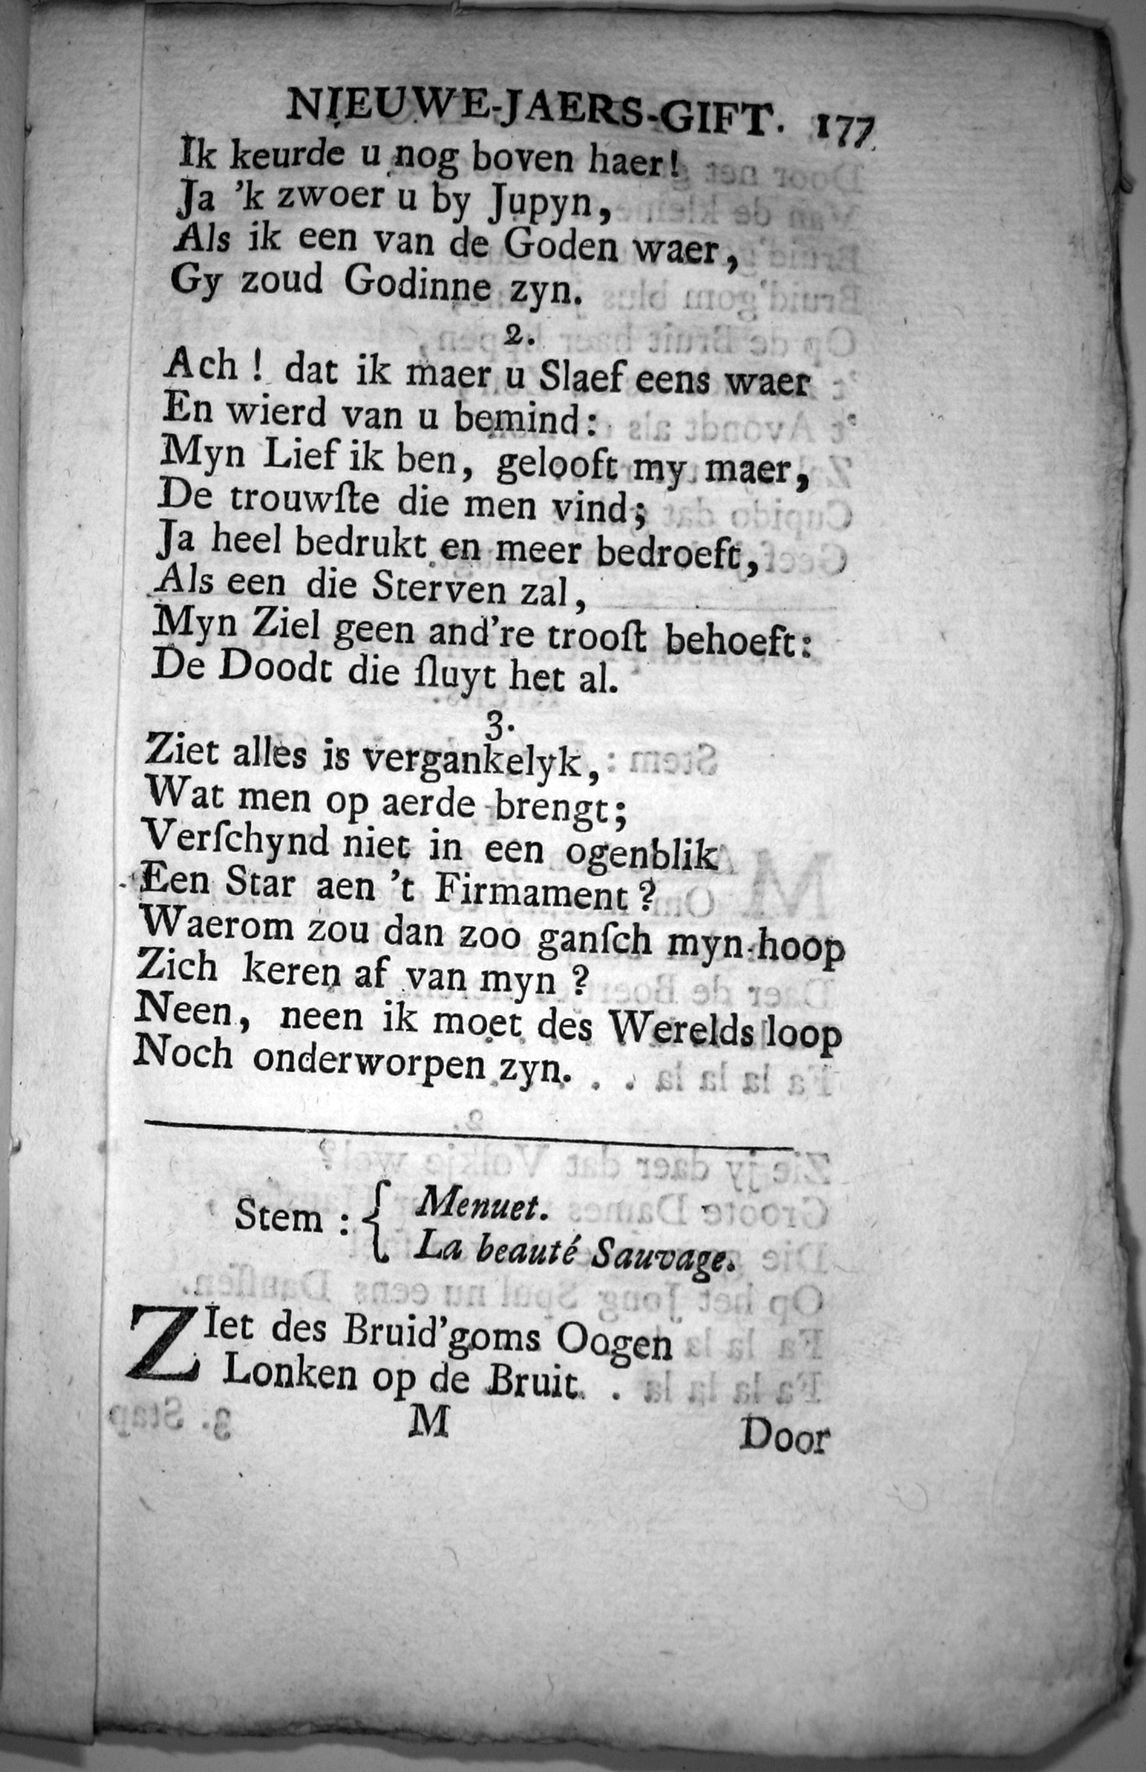 NIEUWE-JAERS-GIFT. 177
Ik keurde u nog boven haer!
Ja ’k zwoer u by Jupyn,
Als ik een van de Goden waer,
Gy zoud Godinne zyn.
2.
Ach! dat ik maer u Slaef eens waer
En wierd van u bemind:
Myn Lief ik ben, gelooft my maer,
De trouwſte die men vind;
Ja heel bedrukt en meer bedroeft,
Als een die Sterven zal,
Myn Ziel geen and’re trooſt behoeft:
De Doodt die ſluyt het al.
3.
Ziet alles is vergankelyk,
Wat men op aerde brengt;
Verſchynd niet in een ogenblik
Een Star aen ’t Firmament?
Waerom zou dan zoo ganſch myn hoop
Zich keren af van myn?
Neen, neen ik moet des Werelds loop
Noch onderworpen zyn.
Stem: { Menuet.
La beauté Sauvage.
ZIet des Bruid’goms Oogen
Lonken op de Bruit.
M Door